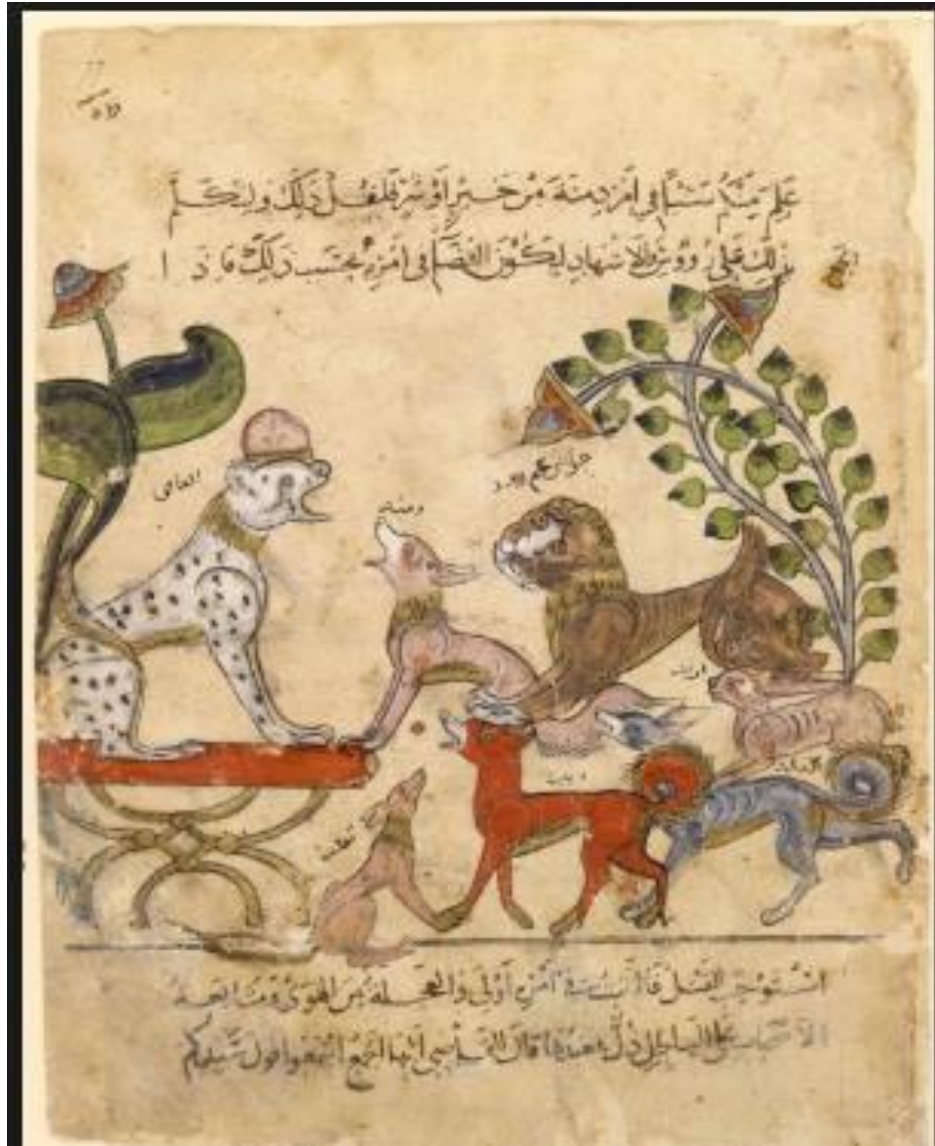 علم منكم شيئا في امر دمنة من خير او شر فليقل ذلك وليتكلم
بذلك على رووس الاشهاد ليكون القضا في امره بحسب ذلك فاذا
القاضي
دمنه
جواس
ارنب
ذيب
ثعلب
استوجب القتل فالتثبت في امره اولى والعجلة من الهوى ومتابعة
الاصحاب على الباطل ذل وعندها قال القاضي ايها الجمع اسمعوا قول سيدكم